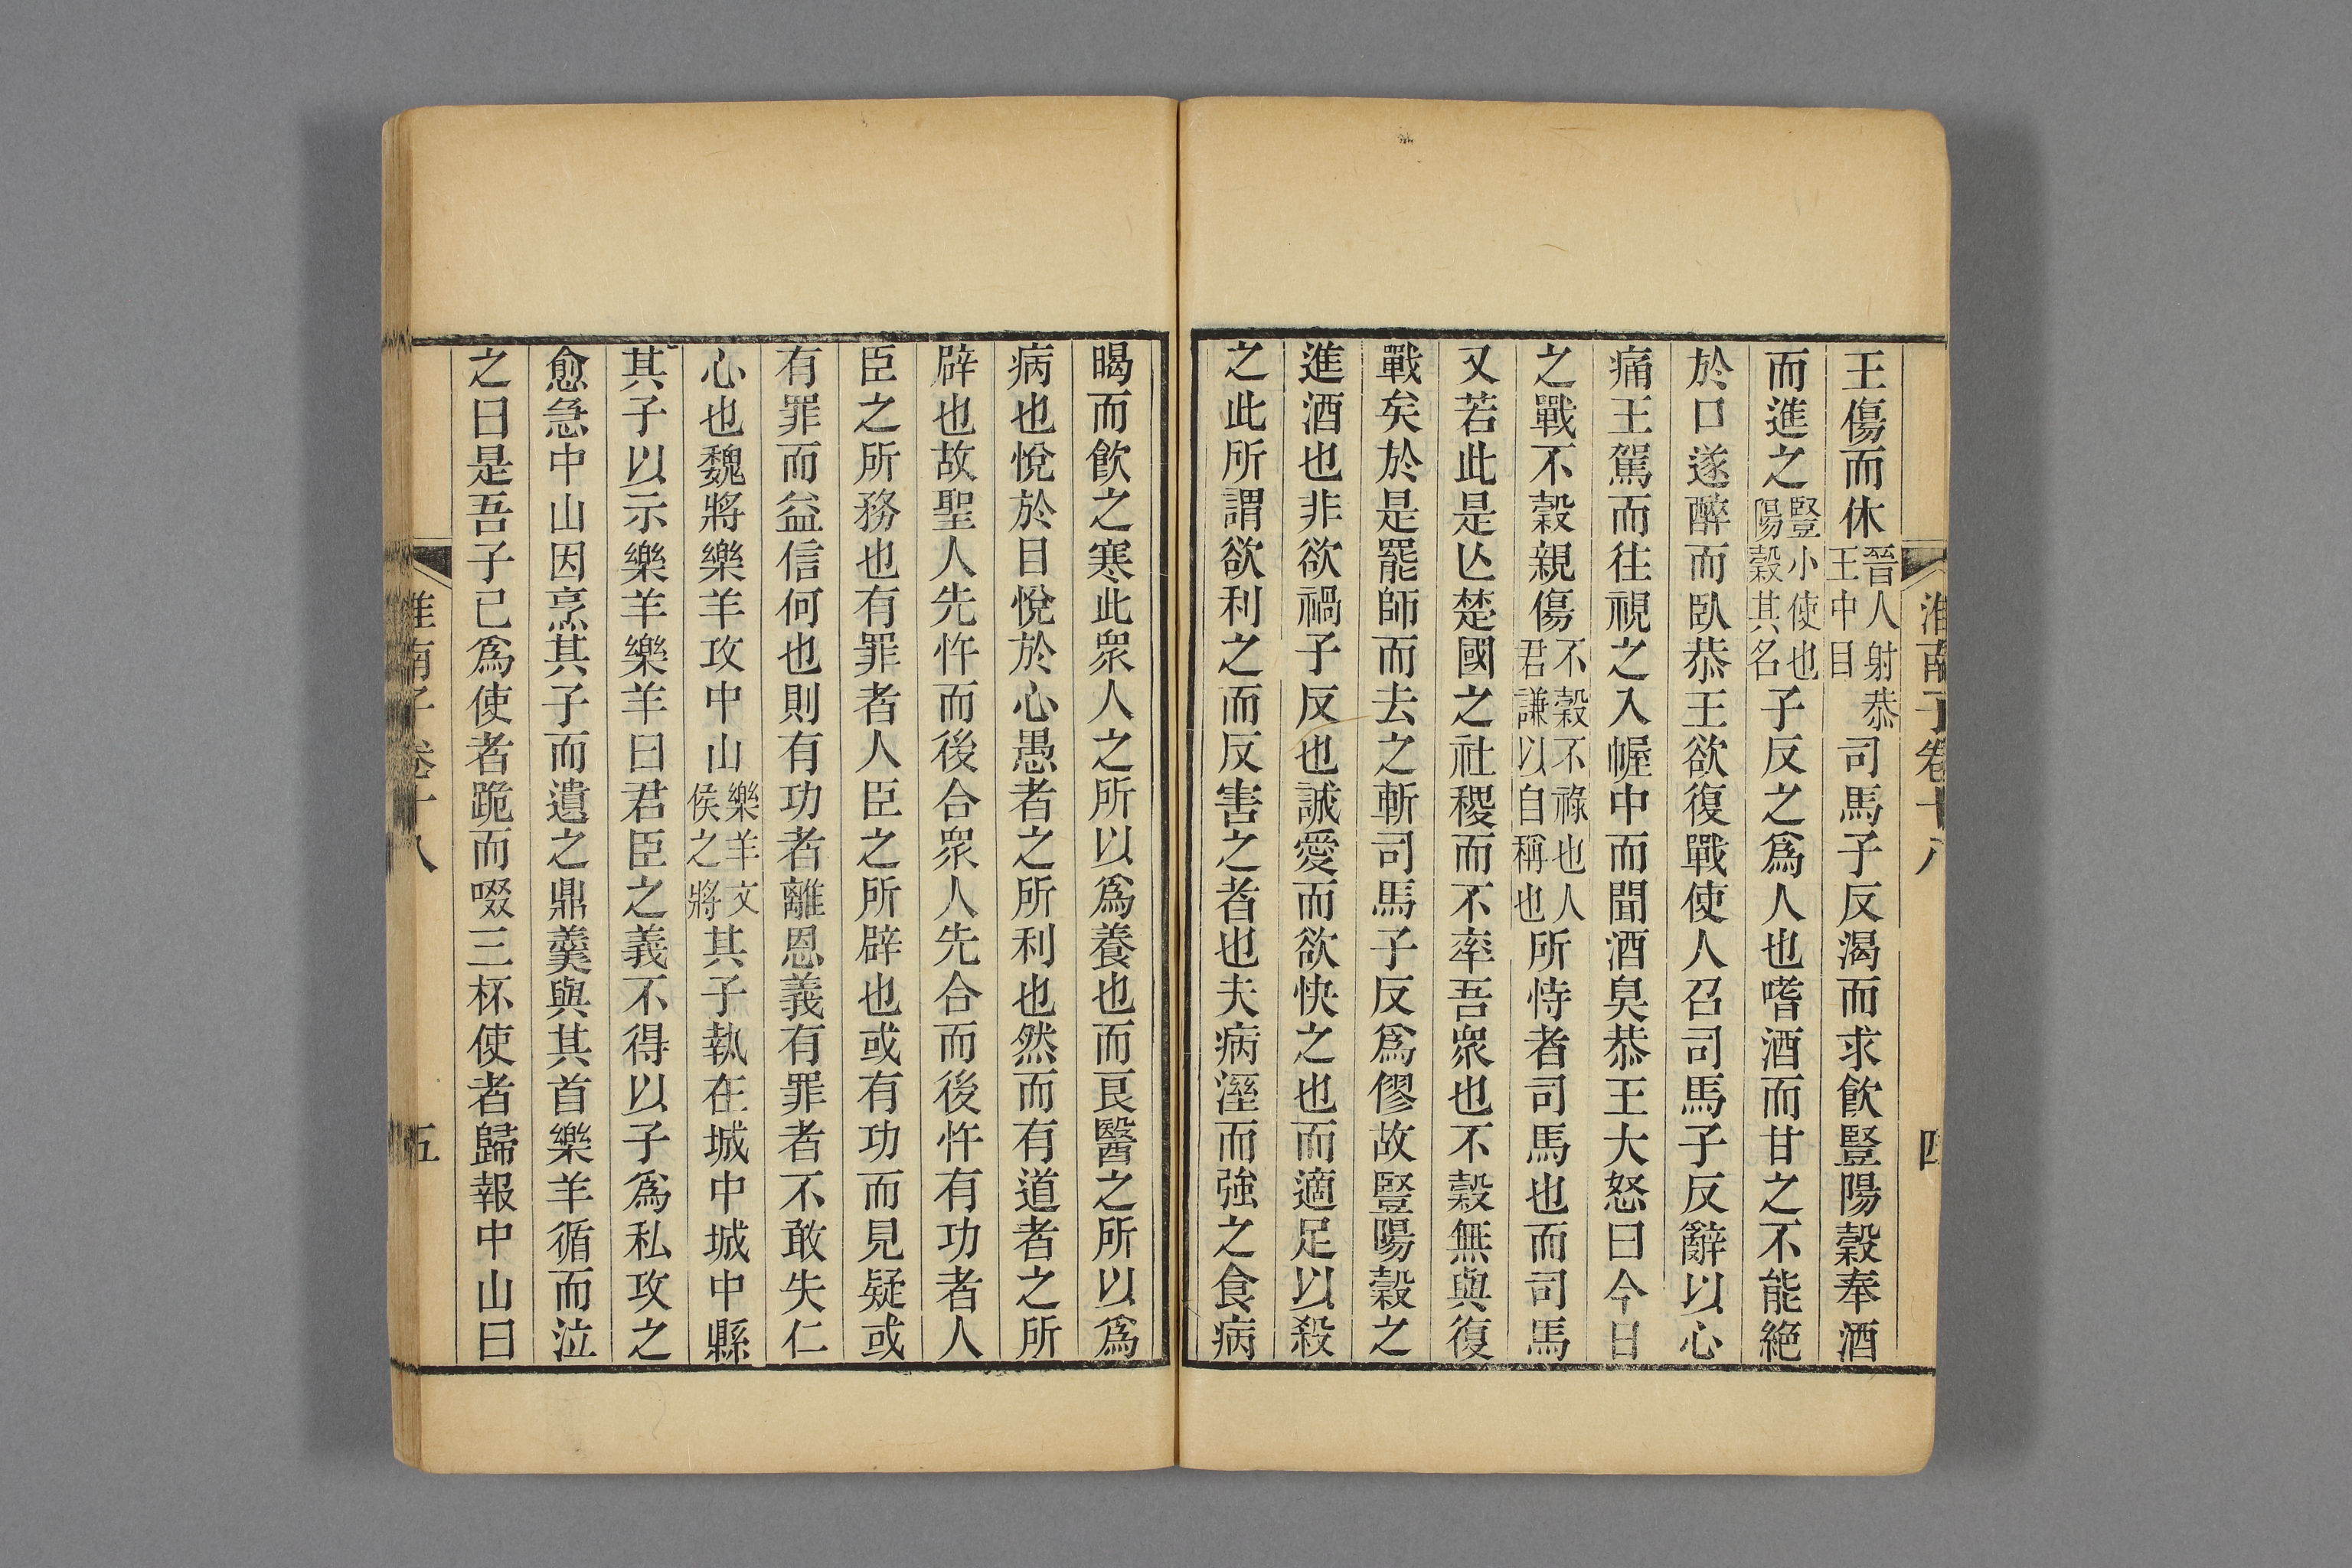 淮南子卷十八
四
王傷而休晉人射恭王中目司馬子反渴而求飮豎陽穀奉酒
而進之豎小使也陽穀其名子反之爲人也嗜酒而甘之不能絕
於口遂醉而臥恭王欲復戰使人召司馬子反辭以心
痛王駕而往視之入幄中而聞酒臭恭王大怒曰今日
之戰不穀親傷不穀不祿也人君謙以自稱也所恃者司馬也而司馬
又若此是亾楚國之社稷而不率吾衆也不穀無與復
戰矣於是罷師而去之斬司馬子反爲僇故豎陽穀之
進酒也非欲禍子反也誠愛而欲快之也而適足以殺
之此所謂欲利之而反害之者也夫病溼而強之食病
暍而飮之寒此衆人之所以爲養也而良醫之所以爲
病也悅於目悅於心愚者之所利也然而有道者之所
辟也故聖人先忤而後合衆人先合而後忤有功者人
臣之所務也有罪者人臣之所辟也或有功而見疑或
有罪而益信何也則有功者離恩義有罪者不敢失仁
心也魏將樂羊攻中山樂羊文侯之將其子執在城中城中縣
其子以示樂羊樂羊曰君臣之義不得以子爲私攻之
愈急中山因烹其子而遺之鼎羹與其首樂羊循而泣
之曰是吾子已爲使者跪而啜三杯使者歸報中山曰
淮南子卷十八
五